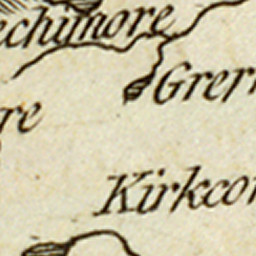 echimore
Grern
re
Kirkcon